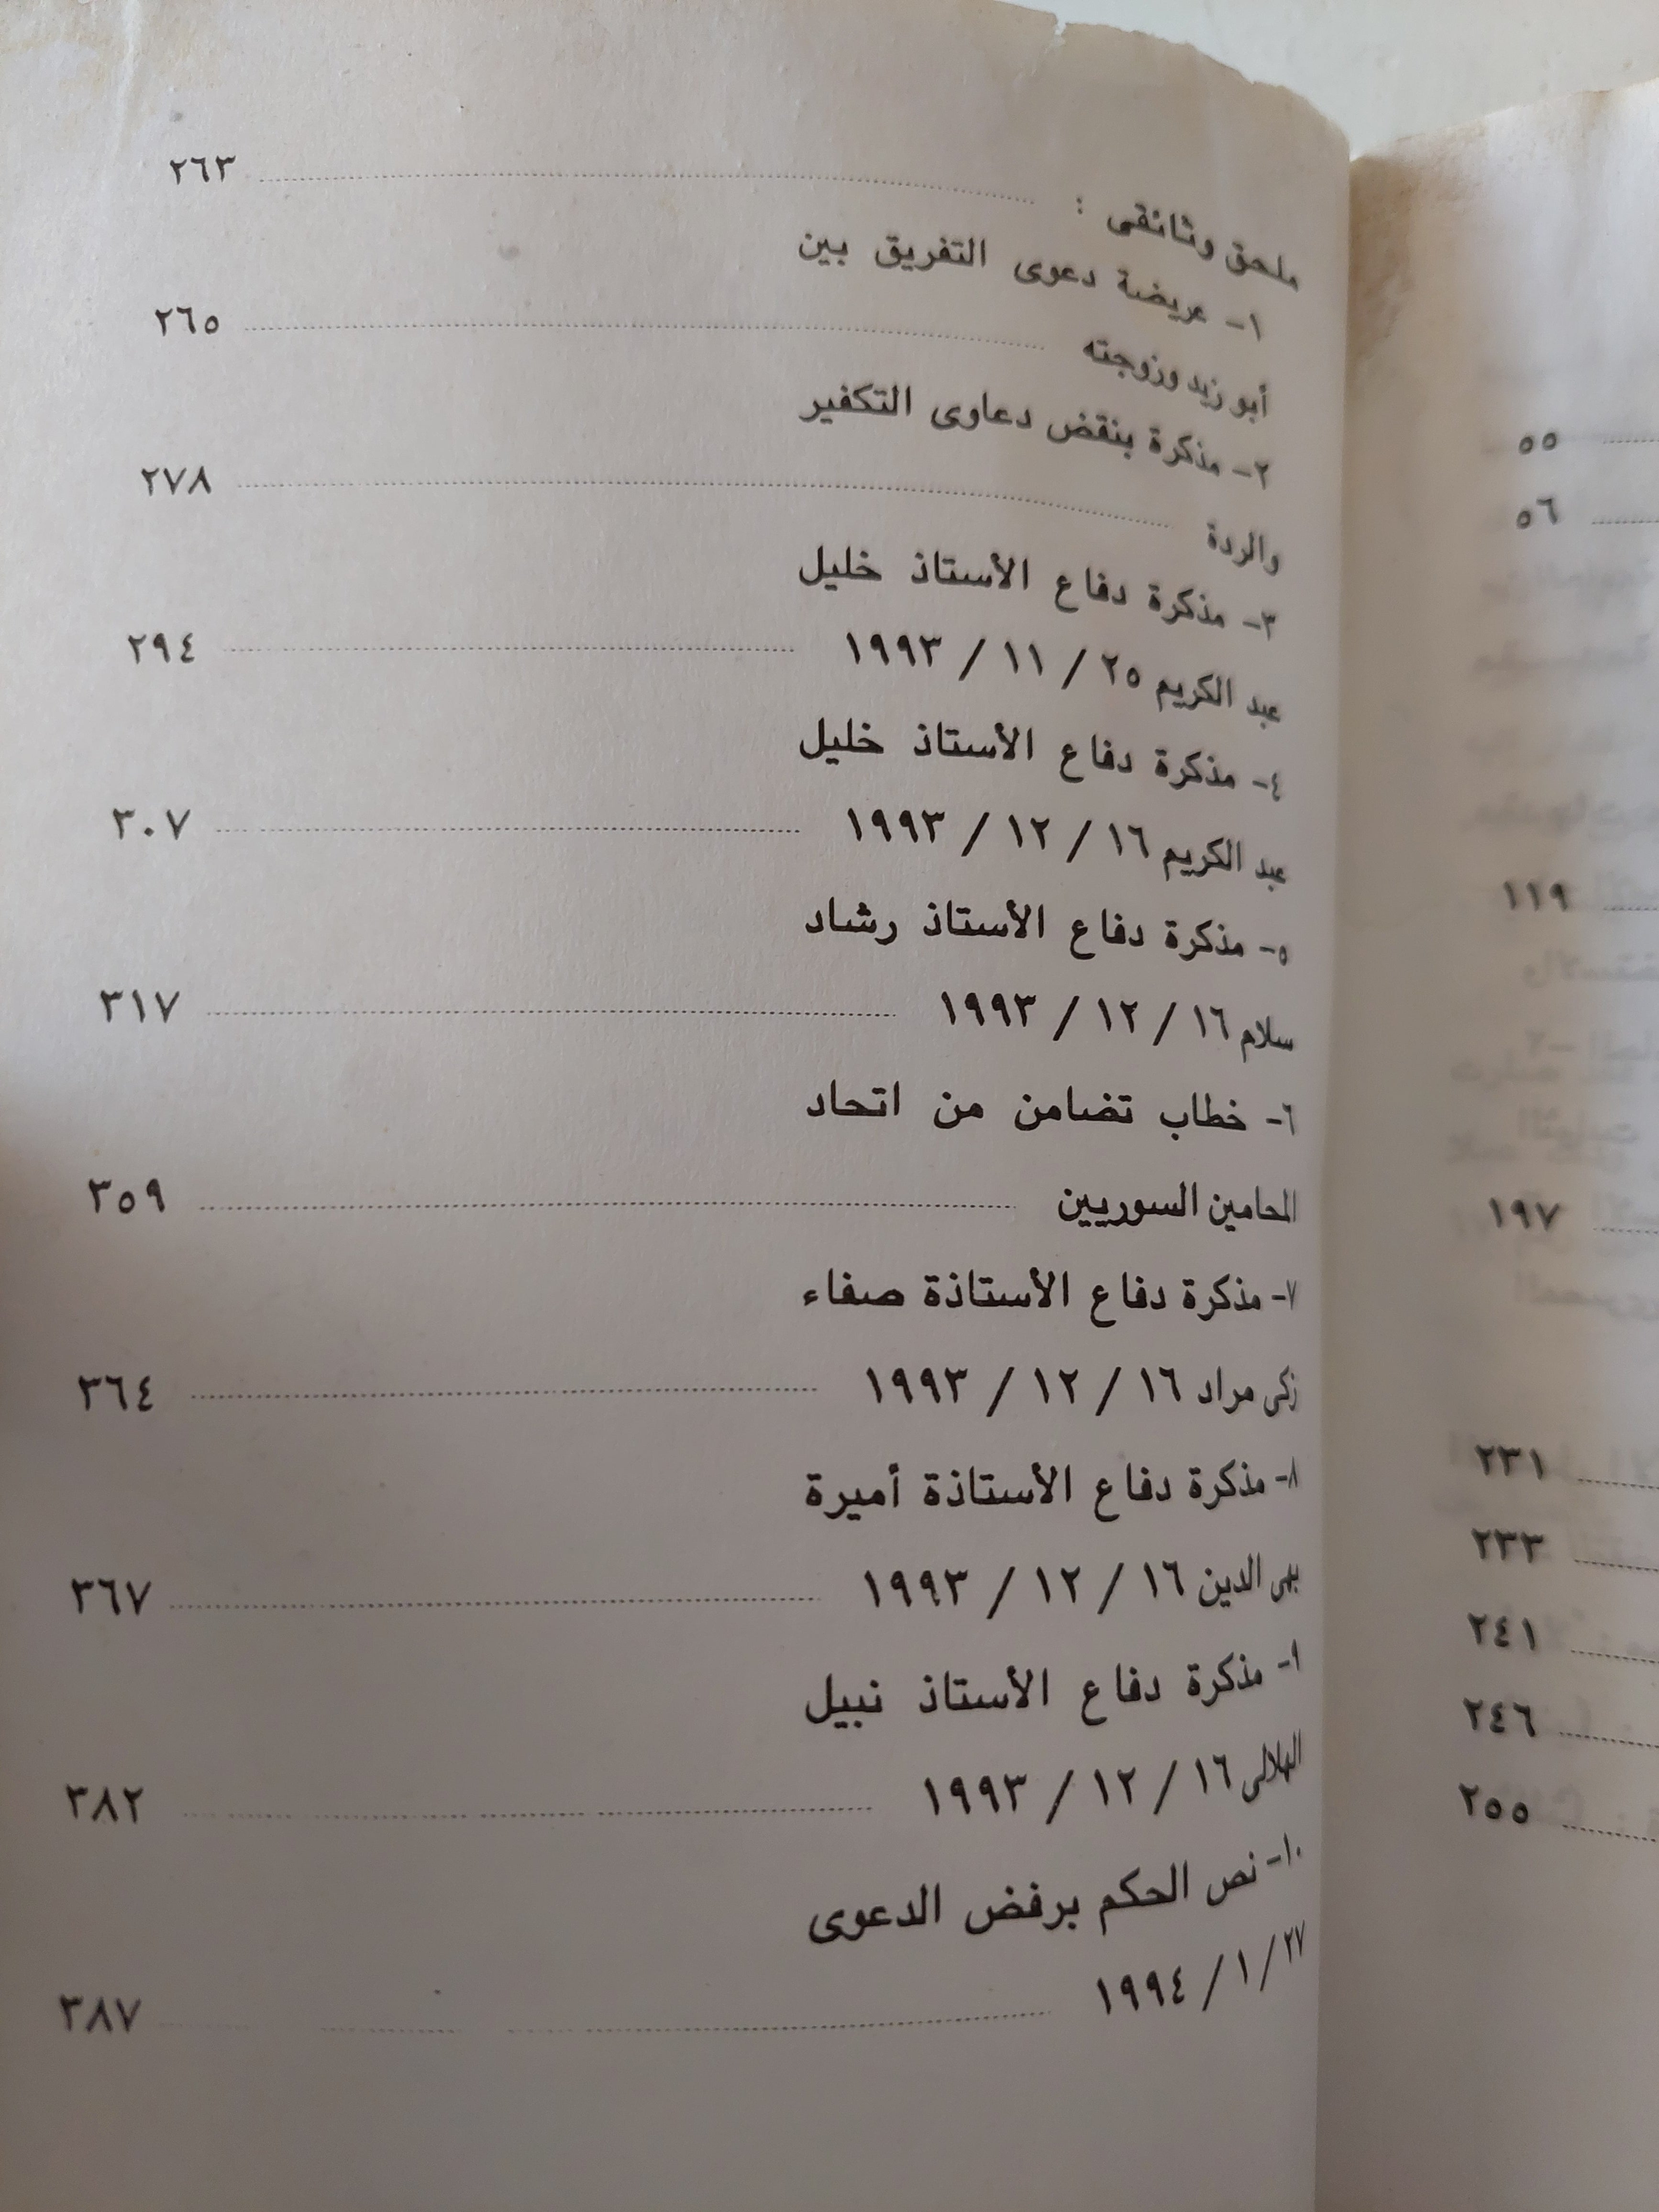 ملحق وثائقى : ٢٦٣
١- عريضة دعوى التفريق بين
أبو زيد وزوجته ٢٦٥
٢- مذكرة بنقض دعاوى التكفير
والردة ٢٧٨
٣- مذكرة دفاع الأستاذ خليل
عبد الكريم ٢٥ / ١١ / ١٩٩٣ ٢٩٤
٤- مذكرة دفاع الأستاذ خليل
عبد الكريم ١٦ / ١٢ / ١٩٩٣ ٣٠٧
٥- مذكرة دفاع الأستاذ رشاد
سلام ١٦ / ١٢ / ١٩٩٣ ٣١٧
٦- خطاب تضامن من اتحاد
المحامين السوريين ٣٥٩
٧- مذكرة دفاع الأستاذة صفاء
زكى مراد ١٦ / ١٢ / ١٩٩٣ ٣٦٤
٨- مذكرة دفاع الأستاذة أميرة
بهى الدين ١٦ / ١٢ / ١٩٩٣ ٣٦٧
٩- مذكرة دفاع الأستاذ نبيل
الهلالى ١٦ / ١٢ / ١٩٩٣ ٣٨٢
١٠- نص الحكم برفض الدعوى
٢٧ / ١ / ١٩٩٤ ٣٨٧
٥٥
٥٦
١١٩
١٩٧
٢٣١
٢٣٣
٢٤١
٢٤٦
٢٥٥